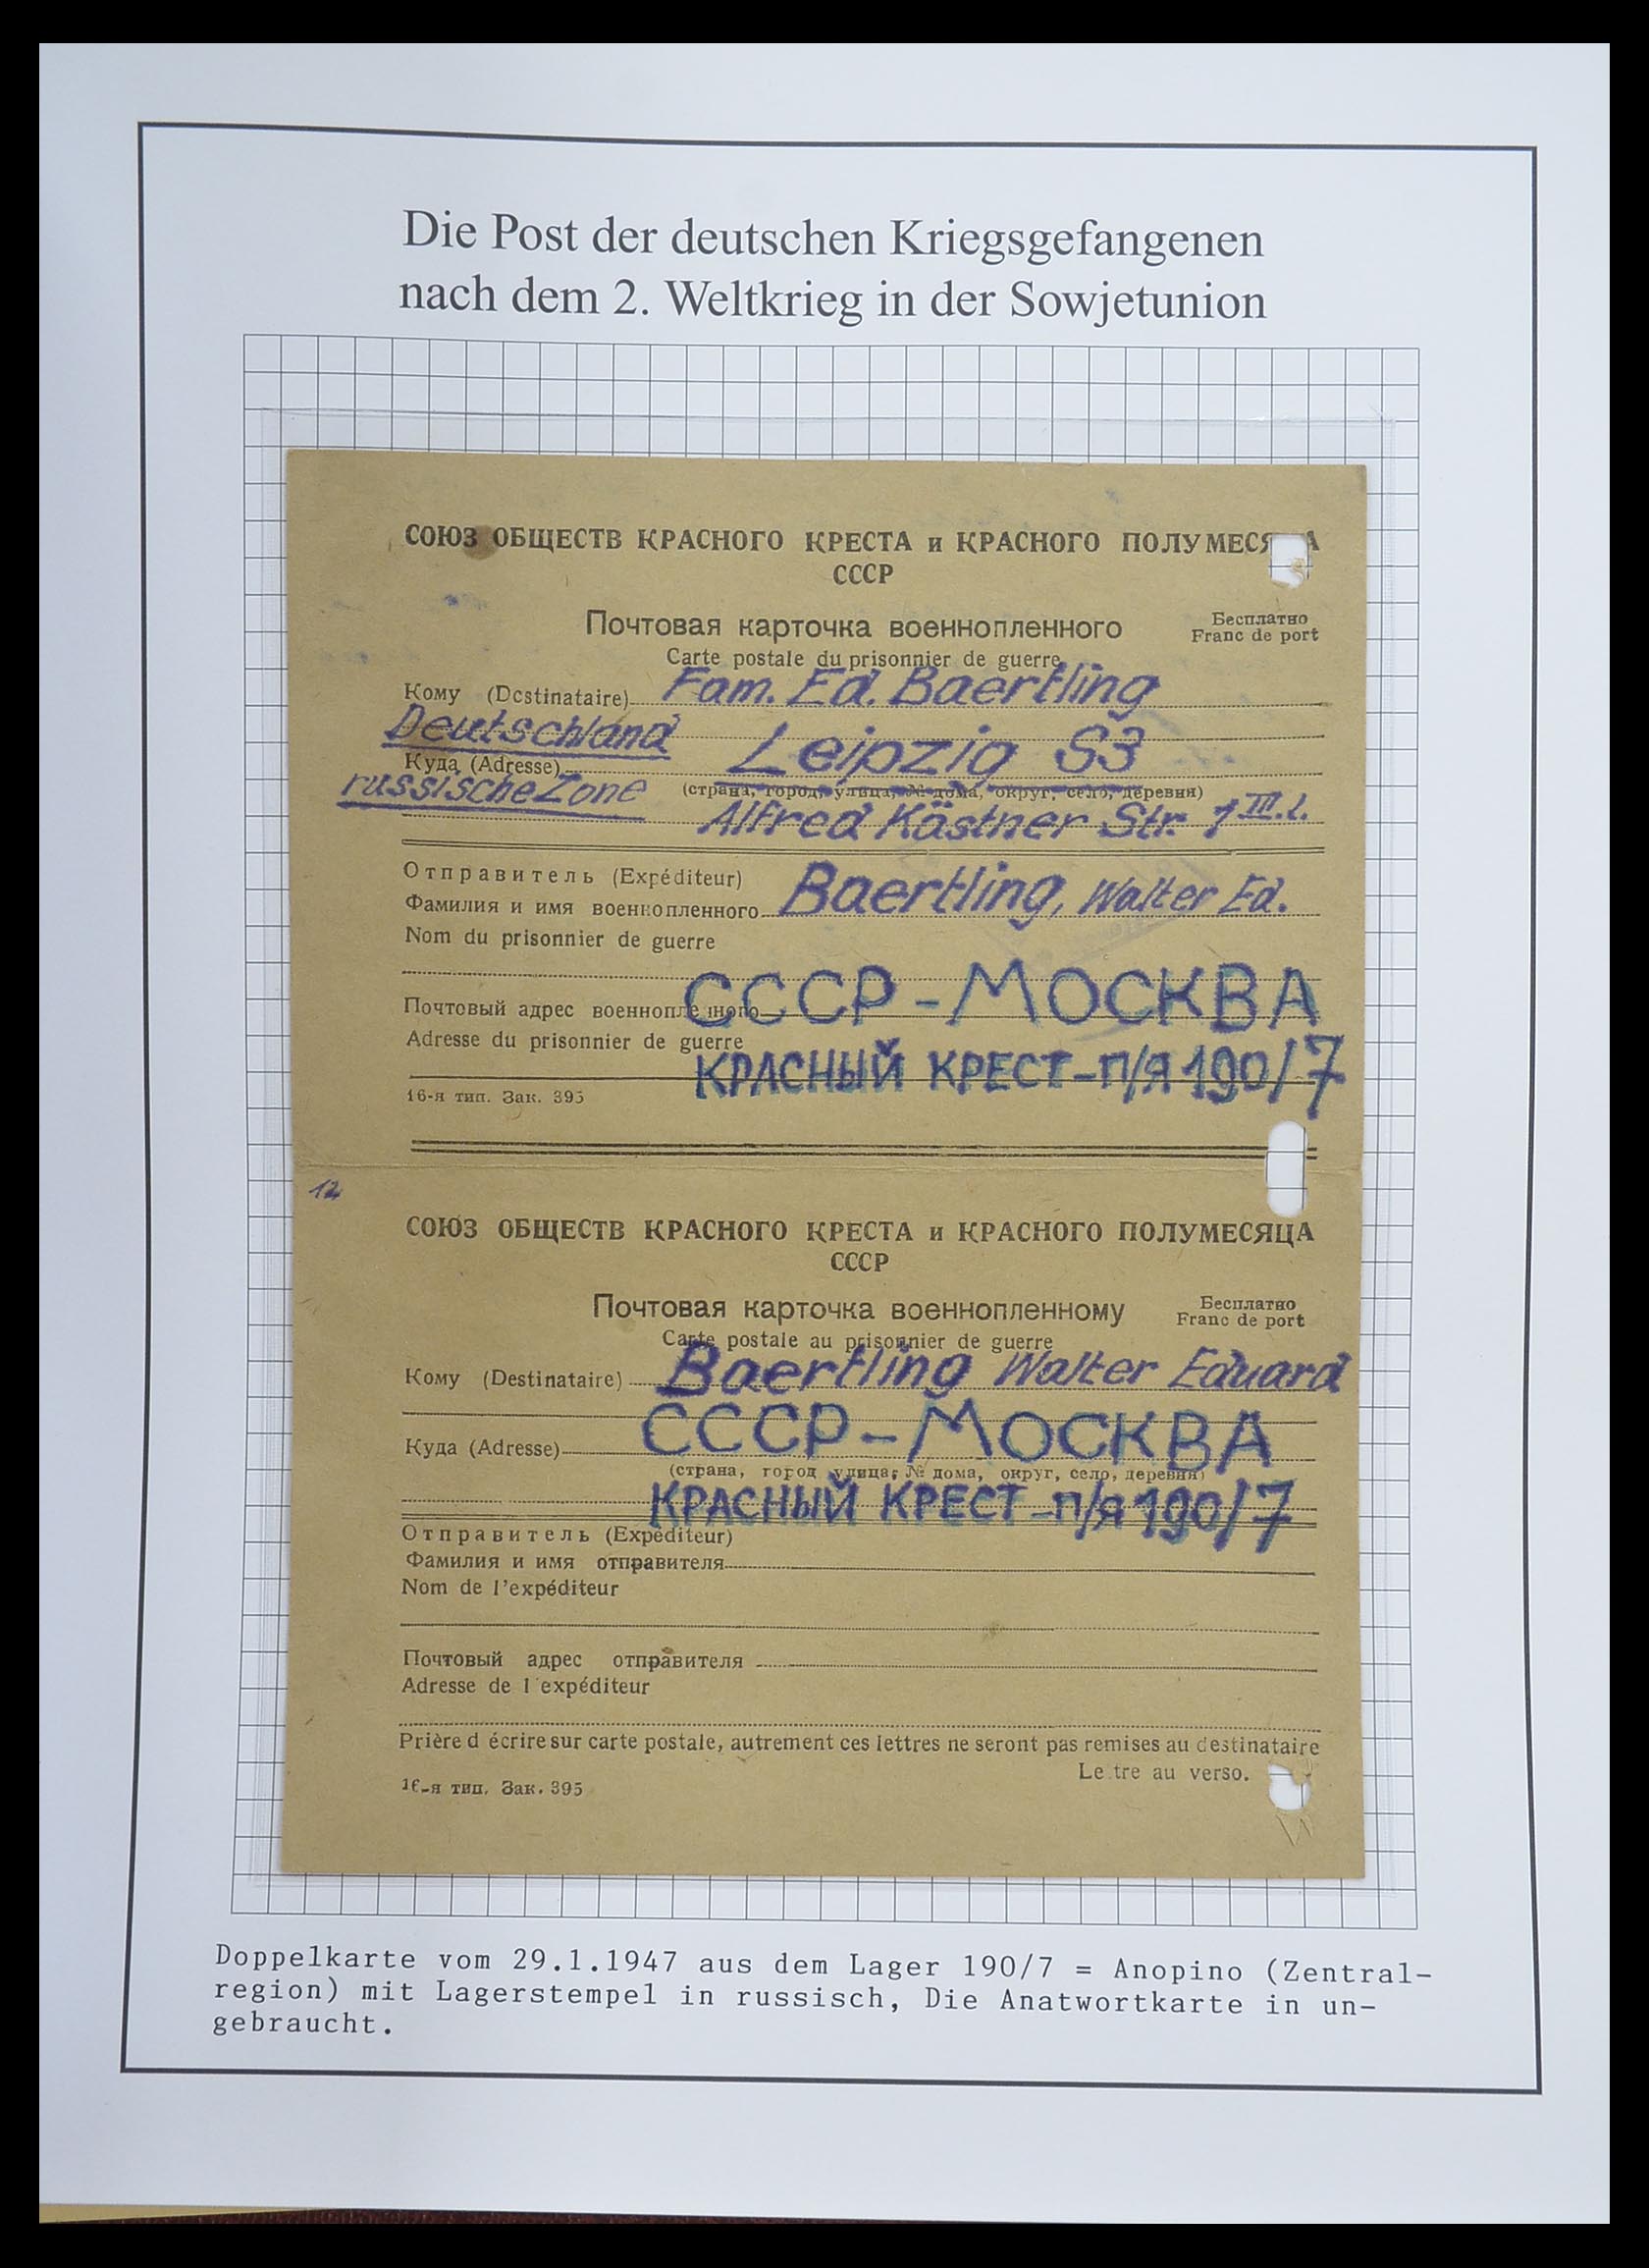 Die Post der deutschen Kriegsgefangenen
nach dem 2. Weltkrieg in der Sowjetunion
СОЮЗ ОБЩЕСТВ КРАСНОГО КРЕСТА и КРАСНОГО ПОЛУМЕСЯЦА
СССР
Почтовая карточка военнопленного
Бесплатно
Carte postale du prisonnier de guerre
Franc de port
Кому (Destinataire) Fam. Ed. Baertling
Deutschland
Leipzig S3
Куда (Adresse)
russische Zone
(страна, город, улица, № дома, округ, село, деревня)
Alfred Kästner Str. 7 III.l.
Отправитель (Expéditeur)
Фамилия и имя военнопленного Baertling, Walter Ed.
Nom du prisonnier de guerre
Почтовый адрес военнопленного СССР-МОСКВА
Adresse du prisonnier de guerre
КРАСНЫЙ КРЕСТ-П/Я 190/7
16-я тип. Зак. 395
12
СОЮЗ ОБЩЕСТВ КРАСНОГО КРЕСТА и КРАСНОГО ПОЛУМЕСЯЦА
СССР
Почтовая карточка военнопленному
Бесплатно
Carte postale au prisonnier de guerre
Franc de port
Кому (Destinataire) Baertling Walter Eduard
СССР-МОСКВА
Куда (Adresse)
(страна, город улица, № дома, округ, село, деревня)
КРАСНЫЙ КРЕСТ-П/Я 190/7
Отправитель (Expéditeur)
Фамилия и имя отправителя
Nom de l'expéditeur
Почтовый адрес отправителя
Adresse de l'expéditeur
Prière d écrire sur carte postale, autrement ces lettres ne seront pas remises au destinataire
Le tre au verso.
16-я тип. Зак. 395
Doppelkarte vom 29.1.1947 aus dem Lager 190/7 = Anopino (Zentral-
region) mit Lagerstempel in russisch, Die Anatwortkarte in un-
gebraucht.